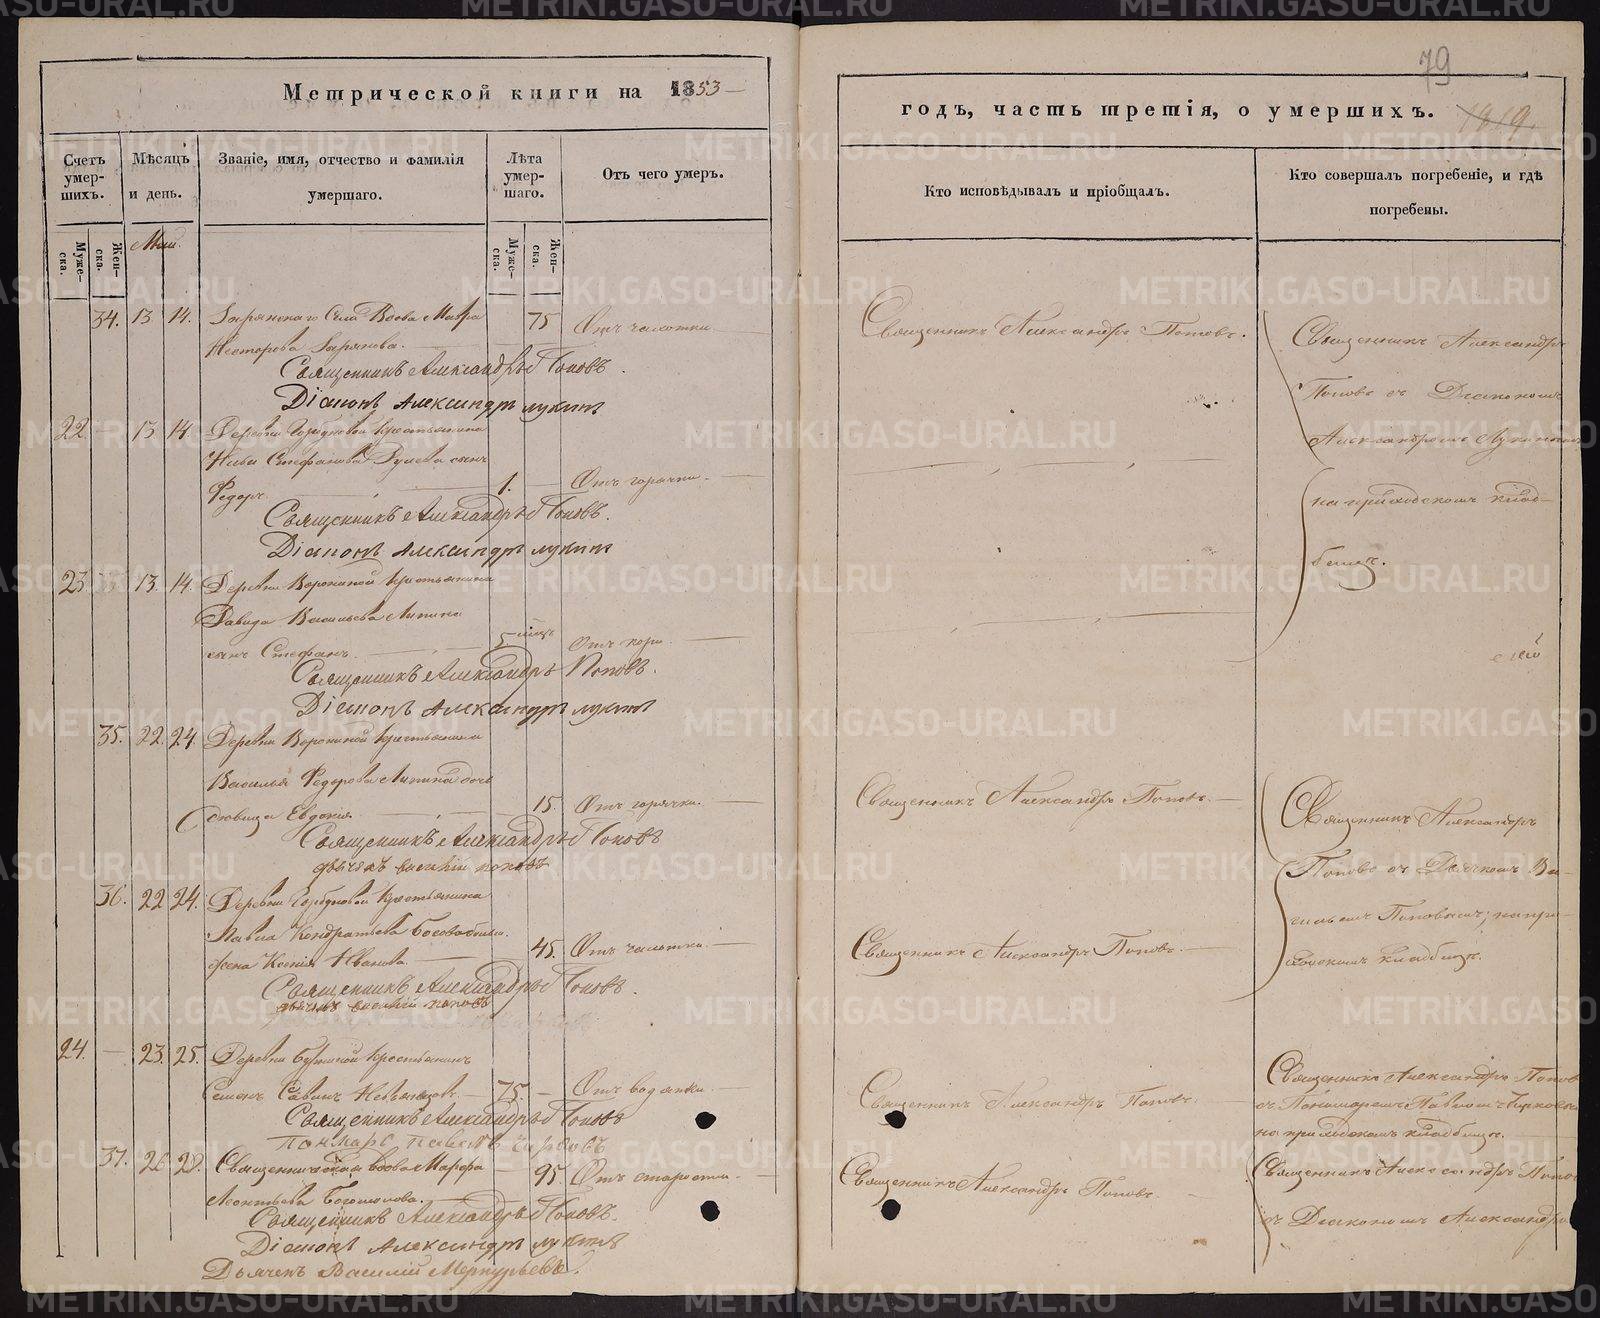 Метрической книги на 1853
Счетъ умер-шихъ.
Мѣсяцъ и день.
Званіе, имя, отчество и фамилія умершаго.
Лѣта умер-шаго.
Отъ чего умеръ.
Муже-ска.
Жен-ска.
Май.
Муже-ска.
Жен-ска.
34. 13 14. Села Вдова Мавра 75 Отъ чахотки
Несторова
Священникъ Александръ Поповъ.
Діаконъ Александръ Лукинъ
22 — 13 14. Деревни Горбуновой Крестьянина
Стефанова сынъ
Федоръ. 1. — Отъ горячки.
Священникъ Александръ Поповъ.
Діаконъ Александръ Лукинъ
23. 13. 14. Деревни Ворониной Крестьянина
Давида Васильева Липина
сынъ Стефанъ. 5 мѣц Отъ кори
Священникъ Александръ Поповъ.
Діаконъ Александръ Лукинъ
35. 22. 24. Деревни Ворониной Крестьянина
Василья Федорова Липина дочь
девица Евдокия 15. Отъ горячки.
Священникъ Александръ Поповъ
дьячекъ Василий Поповъ
36. 22 24. Деревни Горбуновой Крестьянина
Павла Кондратьева
жена Ксенія Иванова. 45. Отъ чахотки
Священникъ Александръ Поповъ.
дьячекъ Василий Поповъ
24. — 23. 25. Деревни Крестьянинъ
Семенъ Савинъ 75. — Отъ водянки
Священникъ Александръ Поповъ
Понмарь Павелъ
37. 26 28. Священническая вдова Марфа 95. Отъ старости
Леонтьева Богомолова.
Священникъ Александръ Поповъ.
Діаконъ Александръ Лукинъ
Дьячекъ Василій Меркурьевъ.
79
годъ, часть третія, о умершихъ.
Кто исповѣдывалъ и пріобщалъ.
Кто совершалъ погребеніе, и гдѣ погребены.
Священникъ Александръ Поповъ.
Священникъ Александръ
Поповъ съ Діакономъ
Александромъ Лукинымъ
на приходскомъ клад-
бищѣ.
Священникъ Александръ Поповъ.
Священникъ Александръ
Поповъ съ Дьячкомъ Ва-
сильемъ Поповымъ; на при-
ходскомъ кладбищѣ.
Священникъ Александръ Поповъ.
Священникъ Александръ Поповъ.
Священникъ Александръ Поповъ
съ Пономаремъ Павломъ
на приходскомъ кладбищѣ.
Священникъ Александръ Поповъ.
Священникъ Александръ Поповъ
съ Діакономъ Александро
METRIKI.GASO-URAL.RU